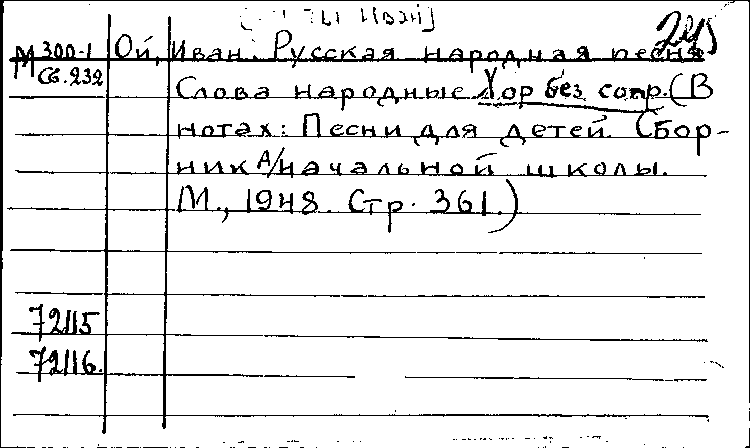 245
М 300-1 Ой, Иван. Русская народная песня
Сб. 232 Слова народные Хор без сопр. (В
нотах: Песни для детей. Сбор-
ник д/начальной школы.
М., 1948. Стр. 361.)
72115
72116.